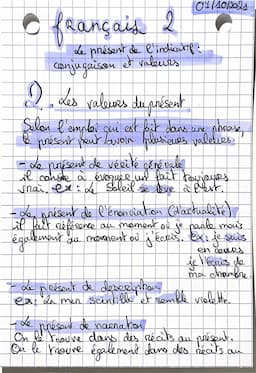 07/10/2021
français 2
Le présent de l'indicatif :
conjugaison et valeurs
2. Les valeurs du présent
Selon l'emploi qui est fait dans une phrase,
le présent peut avoir plusieurs valeurs.
- Le présent de vérité générale
il consiste à évoquer un fait toujours
vrai. ex : Le Soleil se lève à l'Est.
- Le présent de l'énonciation (d'actualité)
il fait référence au moment où je parle mais
également au moment où j'écris. ex : je suis
en cours
je l'écris de
ma chambre
- Le présent de description
ex : La mer scintille et semble violette.
- Le présent de narration
On le trouve dans des récits au présent.
On le trouve également dans des récits au